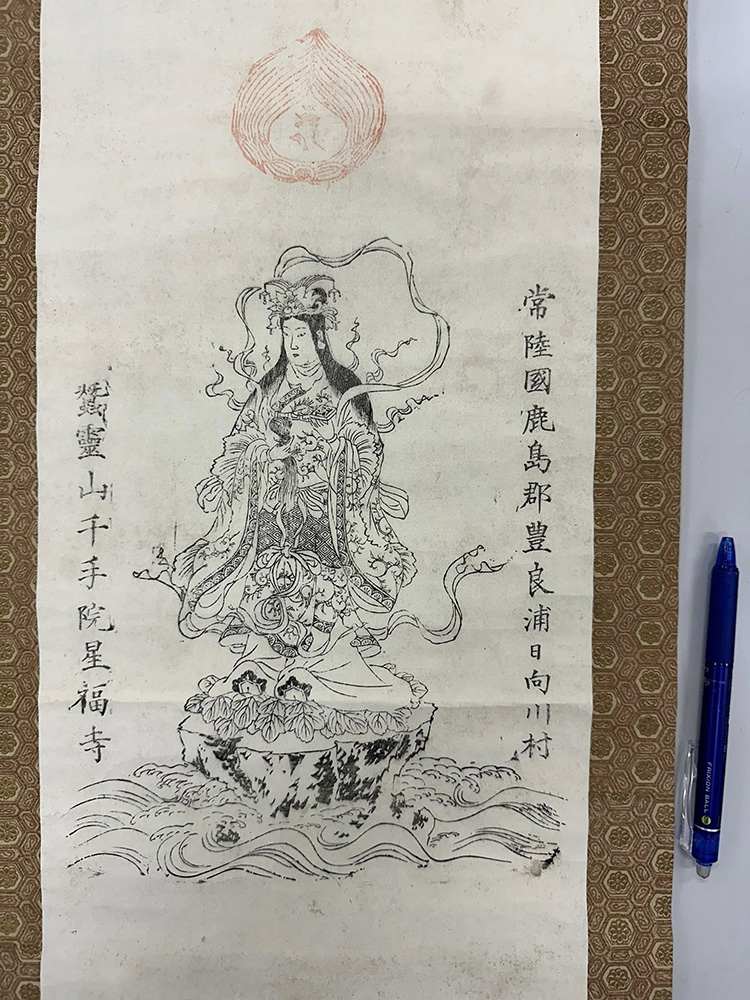 常陸國鹿島郡豊良浦日向川村
蠶靈山千手院星福寺
FRIXION BALL